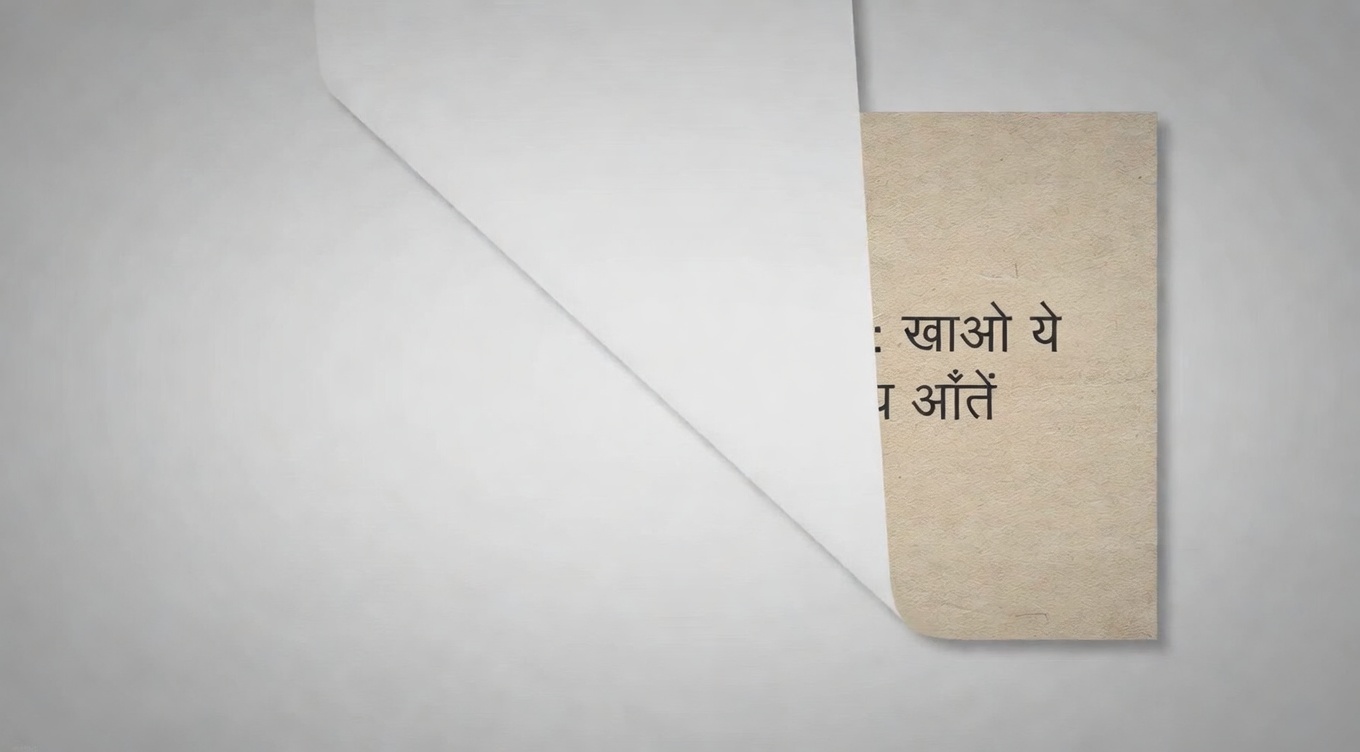 : खाओ ये
आँतें